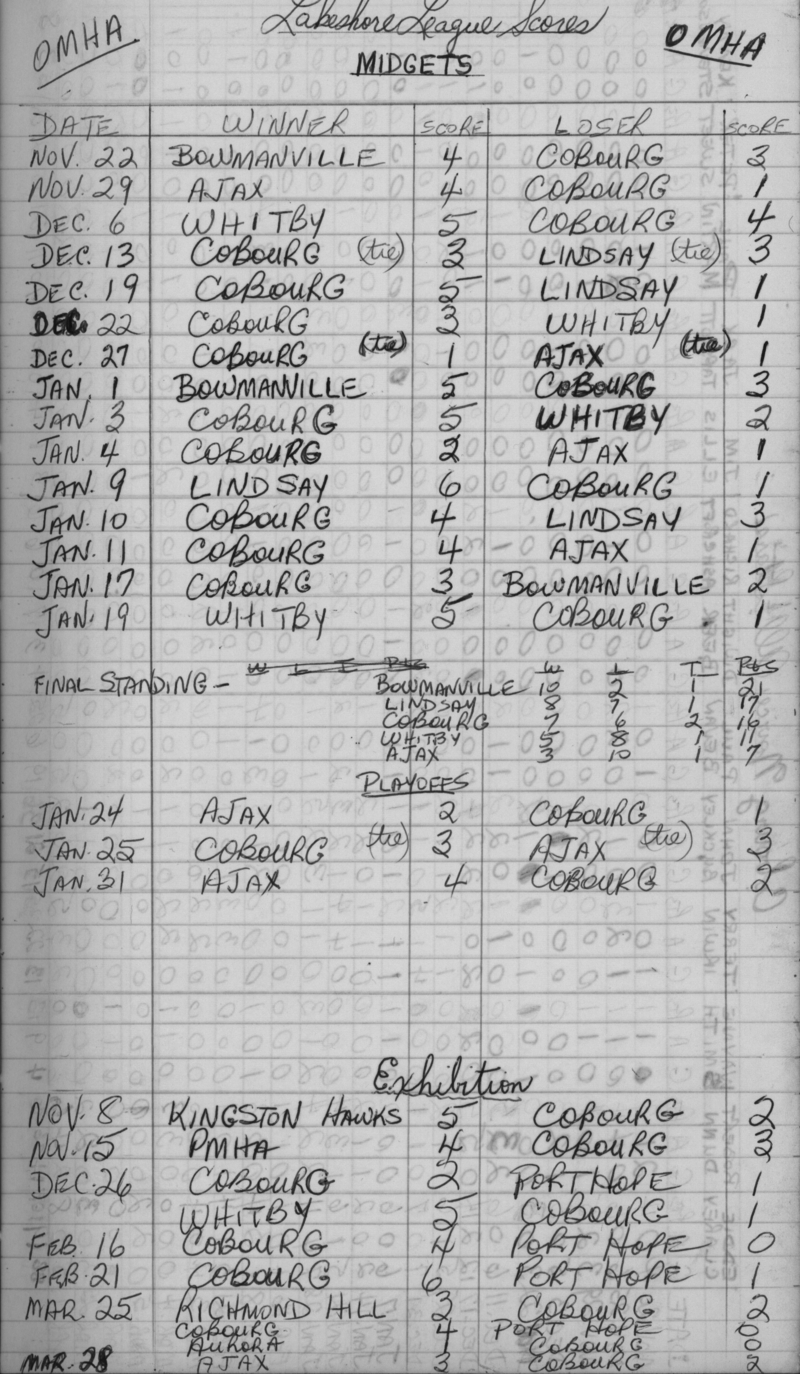 OMHA Lakeshore League Scores OMHA
MIDGETS
DATE WINNER SCORE LOSER SCORE
NOV. 22 BOWMANVILLE 4 COBOURG 3
NOV. 29 AJAX 4 COBOURG 1
DEC. 6 WHITBY 5 COBOURG 4
DEC. 13 COBOURG (tie) 3 LINDSAY (tie) 3
DEC. 19 COBOURG 5 LINDSAY 1
DEC. 22 COBOURG 3 WHITBY 1
DEC. 27 COBOURG (tie) 1 AJAX (tie) 1
JAN. 1 BOWMANVILLE 5 COBOURG 3
JAN. 3 COBOURG 5 WHITBY 2
JAN. 4 COBOURG 2 AJAX 1
JAN. 9 LINDSAY 6 COBOURG 1
JAN. 10 COBOURG 4 LINDSAY 3
JAN. 11 COBOURG 4 AJAX 1
JAN. 17 COBOURG 3 BOWMANVILLE 2
JAN. 19 WHITBY 5 COBOURG 1
W L T Pts W L T Pts
FINAL STANDING - BOWMANVILLE 10 2 1 21
LINDSAY 8 7 1 17
COBOURG 7 6 2 16
WHITBY 5 8 1 11
AJAX 3 10 1 7
PLAYOFFS
JAN. 24 AJAX 2 COBOURG 1
JAN. 25 COBOURG (tie) 3 AJAX (tie) 3
JAN. 31 AJAX 4 COBOURG 2
Exhibition
NOV. 8 KINGSTON HAWKS 5 COBOURG 2
NOV. 15 PMHA 4 COBOURG 3
DEC. 26 COBOURG 2 PORT HOPE 1
WHITBY 5 COBOURG 1
FEB. 16 COBOURG 4 PORT HOPE 0
FEB. 21 COBOURG 6 PORT HOPE 1
MAR. 25 RICHMOND HILL 3 COBOURG 2
COBOURG 4 PORT HOPE 0
AURORA 1 COBOURG 0
MAR. 28 AJAX 3 COBOURG 2